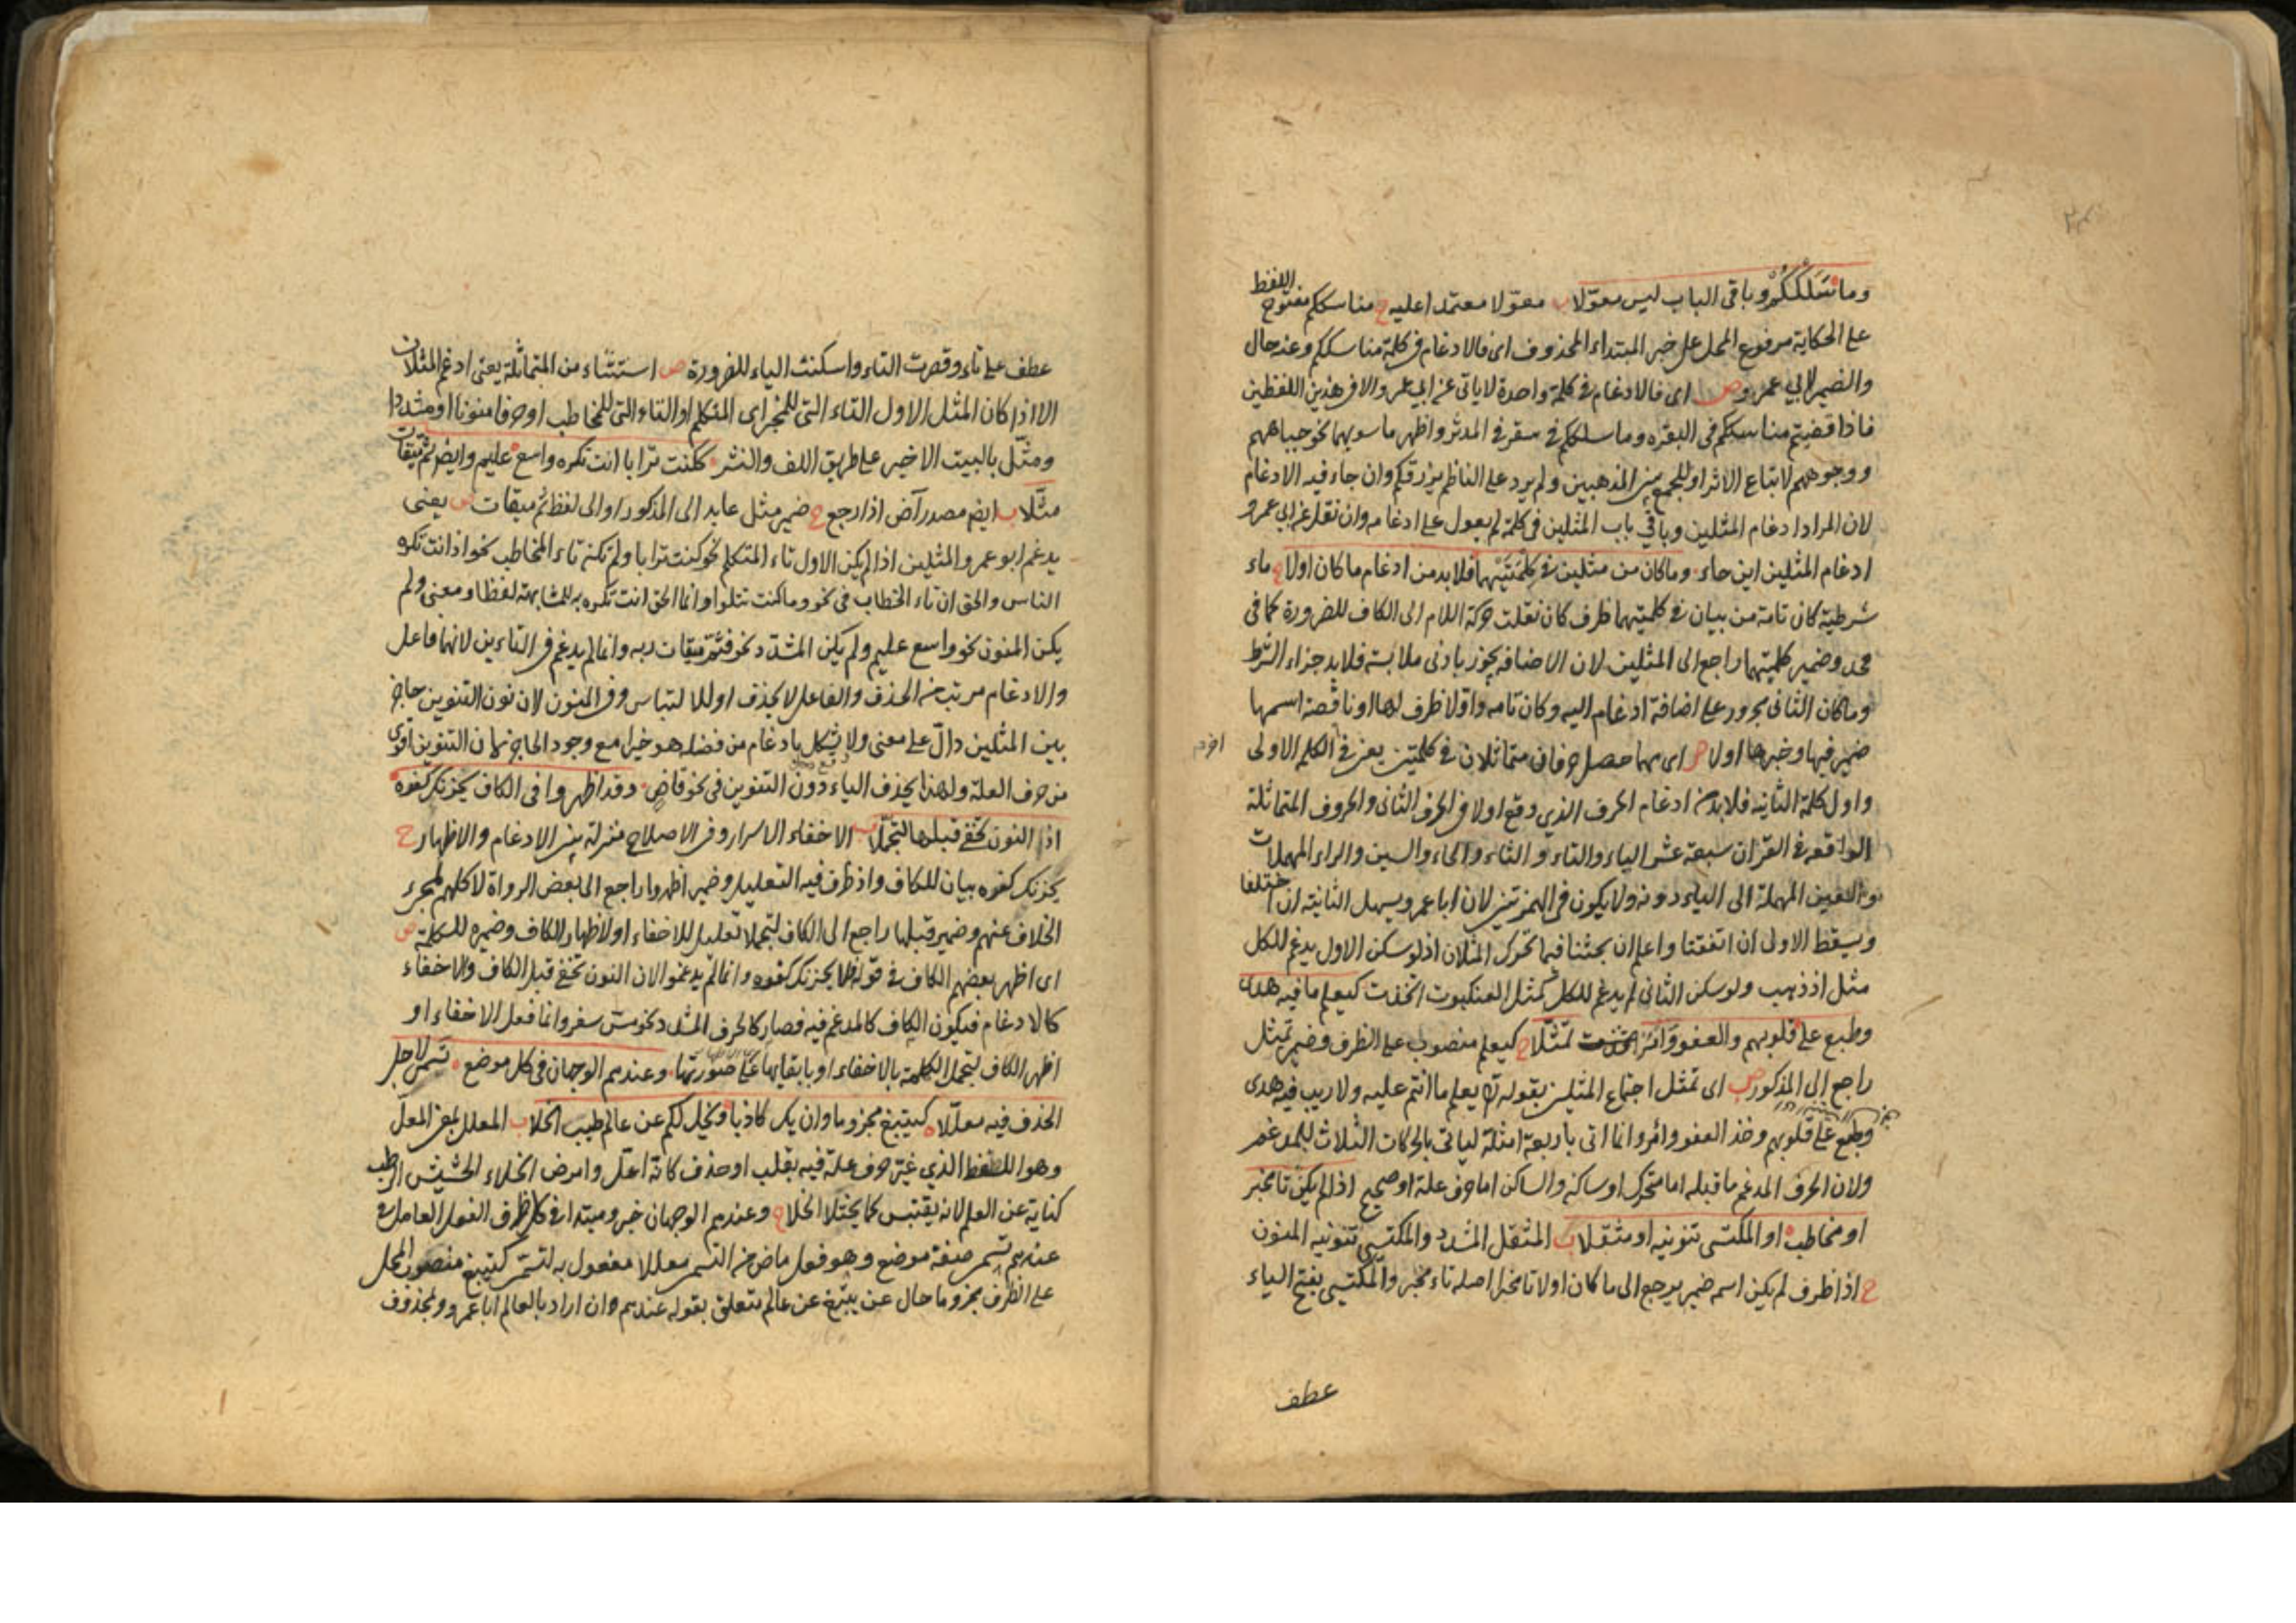 وما سَلَكَكُمْ وباقى الباب ليس معوّلا ب معوّلا معتمدا عليه ح مناسككم مفتوح اللفظ
على الحكاية مرفوع المحل على خبر المبتداء المحذوف اى فالادغام فى كلمة مناسككم وعنه حال
والضمير لابي عمرو ص اى فالادغام فى كلمة واحدة لا ياتى عن ابي عمرو الا فى هذين اللفظين
فاذا قضيتم مناسككم فى البقره وما سلككم فى سقر فى المدثر واظهر ما سويهما نحو جباههم
ووجوههم لاتباع الاثر او للجمع بين المذهبين ولم يرد على الناظم يرزقكم وان جاء فيه الادغام
لان المراد ادغام المثلين وباقي باب المثلين فى كلمة لم يعول على ادغامه وان نقل عن ابي عمرو
ادغام المثلين اين جاء وما كان من مثلين فى كلمتيهما فلا بد من ادغام ما كان اولا ح ماء
شرطية كان تامة من بيان فى كلمتيهما ظرف كان نقلت حركة اللام الى الكاف للضرورة كما فى
محد وضمير كلمتيهما راجع الى المثلين لان الاضافه يجوز بادنى ملابسة فلا بد جزاء الشرط
وما كان الثانى مجرور على اضافة ادغام اليه وكان تامه واولا ظرف لها او ناقصة اسمها
ضمير فيها وخبرها اولا ص اى مهما حصل حرفان متماثلان فى كلمتين يعنى فى الكلمه الاولى
واول كلمة الثانيه فلا بد من ادغام الحرف الذي وقع اولا فى الحرف الثانى والحروف المتماثلة
الواقعه فى القران سبعة عشر الباء والتاء والثاء والحاء والسين والراء المهملات
والعين المهملة الى الياء دونه ولا يكون فى الهمزتين لان ابا عمرو يسهل الثانية ان اختلفا
ويسقط الاولى ان اتفقتا واعلم ان بحثنا فيما تحرك المثلان اذ لو سكن الاول يدغم للكل
مثل اذ ذهب ولو سكن الثانى لم يدغم للكل كمثل العنكبوت اتخذت كيعلم ما فيه هدى
وطبع على قلوبهم والعفو وأمر تمثّلا ح كيعلم منصوب على الظرف وضمير تمثل
راجع الى المذكور ص اى تمثل اجتماع المثلين بقوله تع يعلم ما انتم عليه ولا ريب فيه هدى
وطبع على قلوبهم وخذ العفو وأمر وانما اتى باربعة امثلة لياتى بالحركات الثلاث للمدغم
ولان الحرف المدغم ما قبله اما متحرك او ساكن والساكن اما حرف علة او صحيح اذا لم يكن تا مخبر
او مخاطب او المكتسى تنوينه او مثقلا ب المثقل المشدد والمكتسى تنوينه المنون
ح اذا ظرف لم يكن اسمه ضمير يرجع الى ما كان اولا تا مخبر اصله تاء مخبر والمكتسى بفتح الياء
عطف
عطف على تاء وقصرت التاء واسكنت الياء للضرورة ص استثناء من المتماثلة يعنى ادغم المثلان
الا اذا كان المثل الاول التاء التى للمخبر اى المتكلم او التاء التى للمخاطب او حرفا منونا او مشددا
ومثّل بالبيت الاخير على طريق اللف والنشر ككنت ترابا انت تكره واسع عليم وايضا تم ميقات
مثّلا ب ايض مصدر آض اذا رجع ح ضمير مثل عايد الى المذكور او الى لفظ تم ميقات ص يعنى
يدغم ابو عمرو المثلين اذا لم يكن الاول تاء المتكلم نحو كنت ترابا ولم تكن تاء المخاطب نحو اذانت تكره
الناس والحق ان تاء الخطاب فى نحو وما كنت تتلوا وانما الحق انت تكره به للمشابهة لفظا ومعنى ولم
يكن المنون نحو واسع عليم ولم يكن المشدد نحو فتم ميقات ربه وانما لم يدغم فى التاءين لانهما فاعل
والادغام مرتب من الحذف والفاعل لا يحذف او للالتباس وفى المنون لان نون التنوين حاجز
بين المثلين دالّ على معنى ولا يشكل بادغام من فضله هو خيرا مع وجود الحاجز ثم ان التنوين اقوى
من حرف العلة ولهذا يحذف الياء دون التنوين فى نحو قاض وقد اظهروا فى الكاف يحزنك كفره
اذ النون تخفى قبلها لتجمّلا ب الاخفاء الاسرار وفى الاصطلاح منزلة بين الادغام والاظهار ح
يحزنك كفره بيان للكاف واذ ظرف فيه التعليل وضمير اظهروا راجع الى بعض الرواة لا كلهم لمجرء
الخلاف عنهم وضمير قبلها راجع الى الكاف لتجملا تعليل للاخفاء او لاظهار الكاف وضميره للكلمة ص
اى اظهر بعضهم الكاف فى قوله فلا يحزنك كفره وانما لم يدغموا لان النون تخفى قبل الكاف والاخفاء
كالادغام فيكون الكاف كالمدغم فيه فصار كالحرف المشدد نحو مس سقر وانما فعل الاخفاء او
اظهر الكاف لتجمل الكلمة بالاخفاء او بابقايها على صورتها وعندهم الوجهان فى كل موضع تسمى لاجل
الحذف فيه معلّلا كيبتغ مجزوما وان يك كاذبا ويخل لكم عن عالم طيب الخلا ب المعلل بمعنى المعلّ
وهو اللفظ الذي غيّر حرف علة فيه بقلب او حذف كانه اعلّ وامرض الخلاء الحشيش الرطب
كناية عن العلم لانه يقتبس كما يختلا الخلا ح وعندهم الوجهان خبر ومبتدا فى كل ظرف الفعل العامل فى
عندهم تسمى صفة موضع وهو فعل ماض من التسمى معللا مفعول به لتسمى كيبتغ منصوب المحل
على الظرف مجزوما حال عن يبتغ عن عالم متعلق بقوله عندهم وان اراد بالعالم ابا عمرو ومحذوف